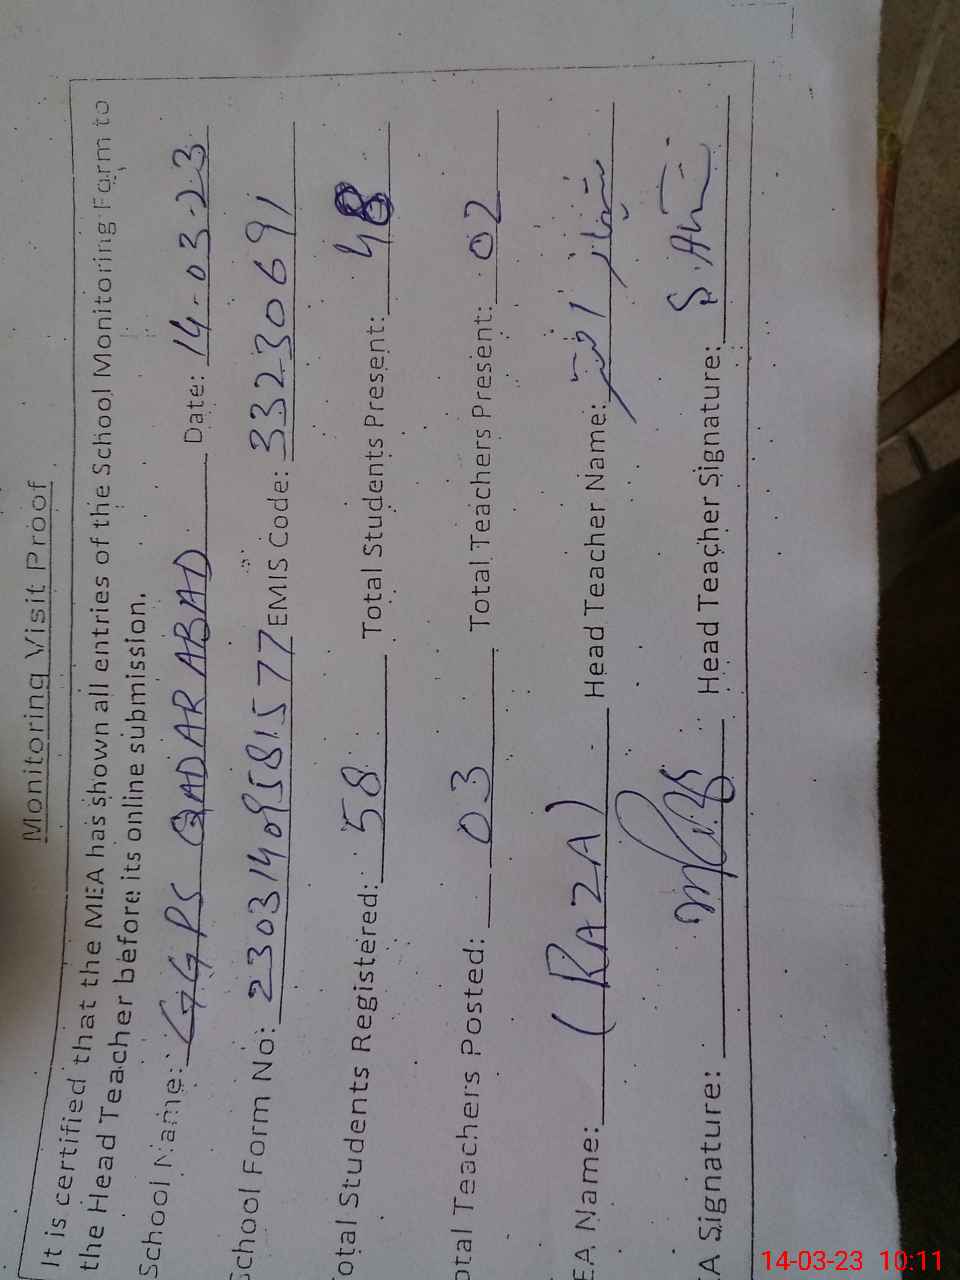 Monitoring Visit Proof
It is certified that the MEA has shown all entries of the School Monitoring Form to
the Head Teacher before its online submission.
School Name: GGPS QADARABAD Date: 14-03-23
School Form No: 23031409581577 EMIS Code: 33230691
otal Students Registered: 58 Total Students Present: 48
otal Teachers Posted: 03 Total Teachers Present: 02
EA Name: (RAZA) Head Teacher Name:
A Signature: Head Teacher Signature:
14-03-23 10:11